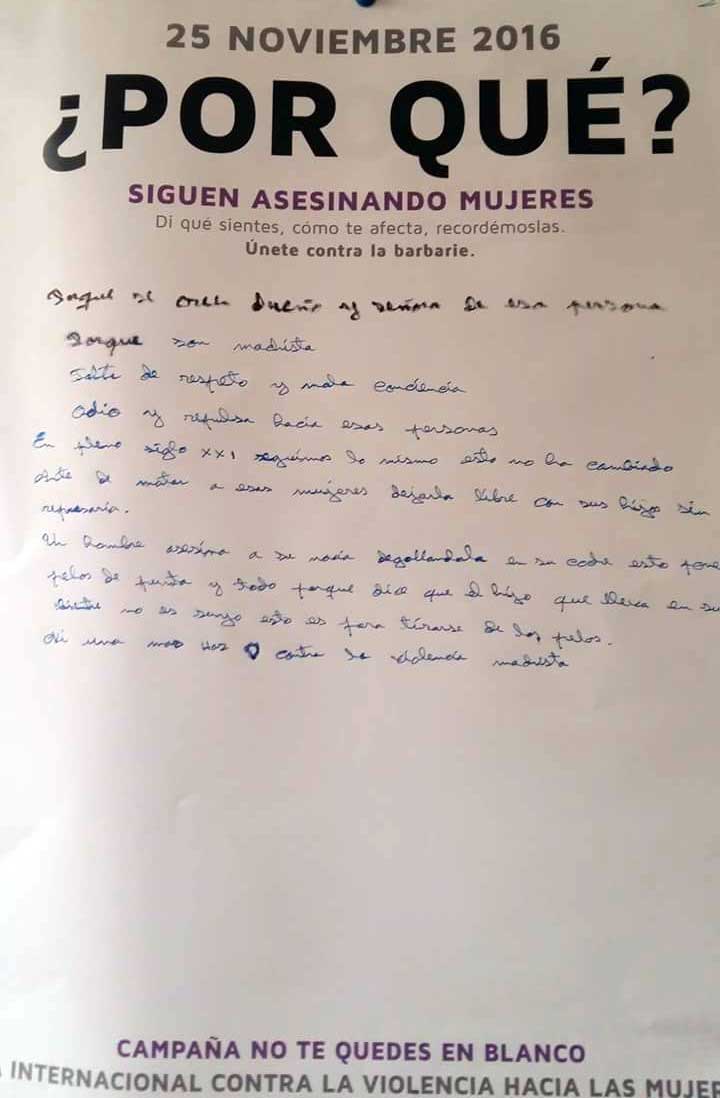 25 NOVIEMBRE 2016
¿POR QUÉ?
SIGUEN ASESINANDO MUJERES
Di qué sientes, cómo te afecta, recordémoslas.
Únete contra la barbarie.
se dueño y señora de esa persona
Porque son madrista
Falta de respeto y mala conciencia
Odio y repulsa hacia esas personas
En pleno siglo XXI seguimos lo mismo esto no ha cambiado
Ante de matar a esas mujeres dejarla libre con sus hijos sin
represaria.
Un hombre asesina a su novia degollandola en su coche esto pone
pelos de punta y todo porque dice que el hijo que lleva en su
no es sullo esto es para tirarse de los pelos.
Ni una mas contra la violencia madrista
CAMPAÑA NO TE QUEDES EN BLANCO
INTERNACIONAL CONTRA LA VIOLENCIA HACIA LAS MUJER